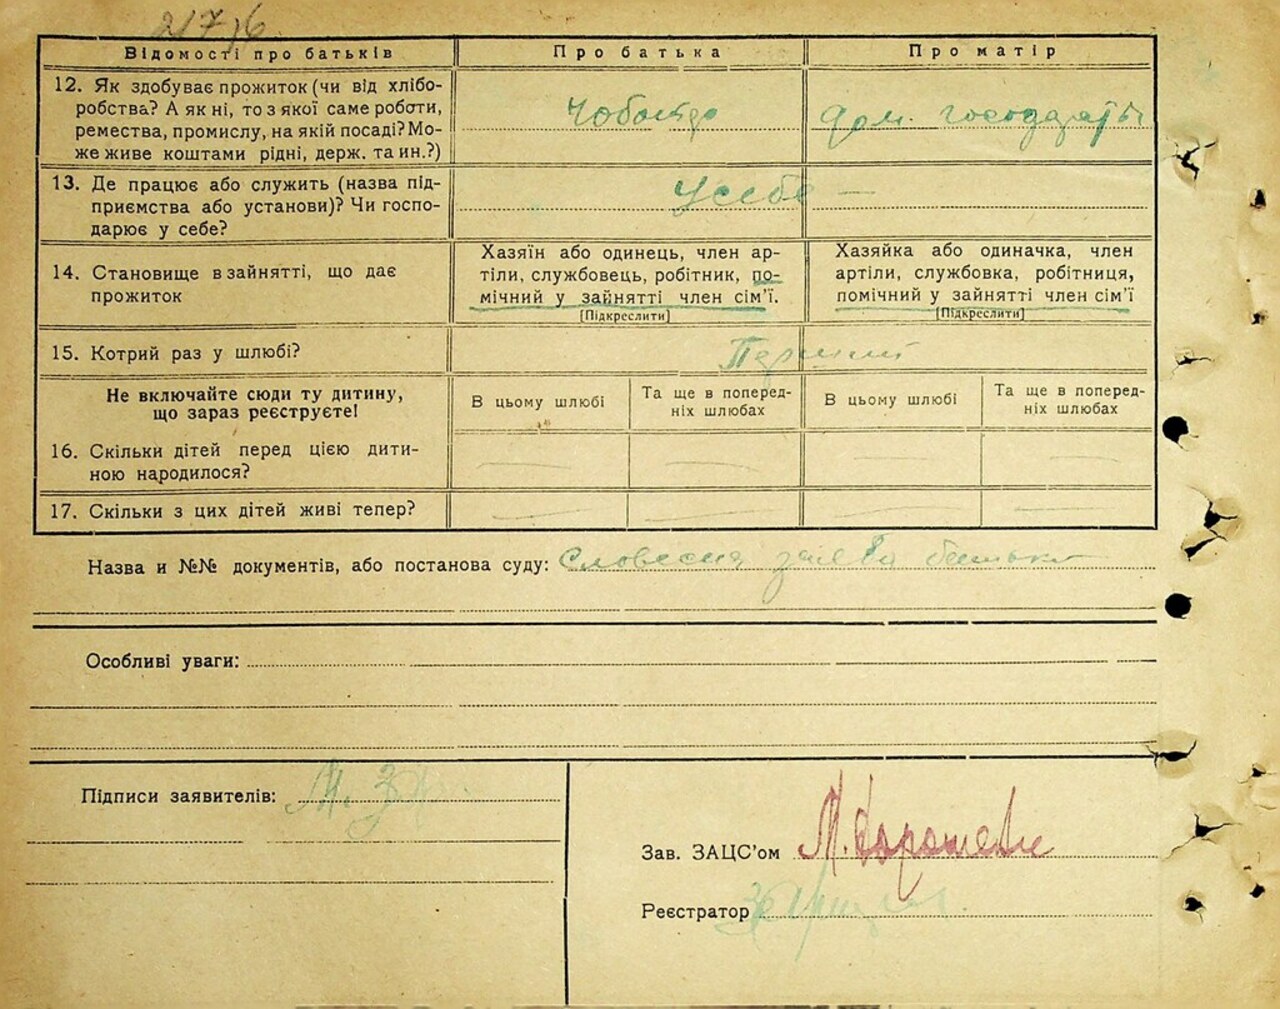 Відомості про батьків Про батька Про матір
12. Як здобуває прожиток (чи від хлібо-
робства? А як ні, то з якої саме роботи,
ремества, промислу, на якій посаді? Мо-
же живе коштами рідні, держ. та ин.?)
Дом.
13. Де працює або служить (назва під-
приємства або установи)? Чи госпо-
дарює у себе?
У себе —
14. Становище в зайнятті, що дає
прожиток
Хазяїн або одинець, член ар-
тіли, службовець, робітник, по-
мічний у зайнятті член сім'ї.
[Підкреслити]
Хазяйка або одиначка, член
артіли, службовка, робітниця,
помічний у зайнятті член сім'ї
[Підкреслити]
15. Котрий раз у шлюбі?
Перший
Не включайте сюди ту дитину,
що зараз реєструєте!
В цьому шлюбі
Та ще в поперед-
ніх шлюбах
В цьому шлюбі
Та ще в поперед-
ніх шлюбах
16. Скільки дітей перед цією дити-
ною народилося?
— — — —
17. Скільки з цих дітей живі тепер?
— — — —
Назва и №№ документів, або постанова суду: Словесна заява батька
Особливі уваги:
Підписи заявителів:
Зав. ЗАЦС'ом
Реєстратор